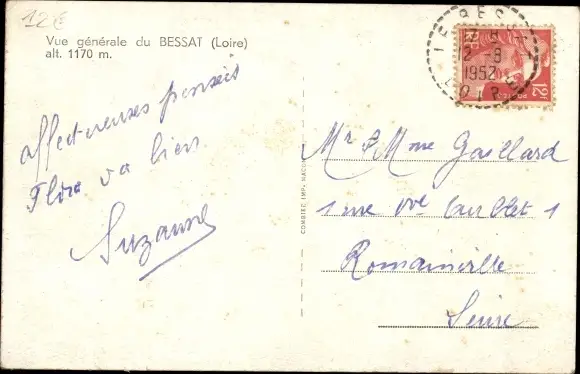 12€
Vue générale du BESSAT (Loire)
alt. 1170 m.
affectueuses pensées
Flore va bien
Suzanne
COMBIER IMP. MACON
LE BESSAT
12-8
1952
LOIRE
12
Mr & Mme Gaillard
1 rue 1
Romainville
Seine